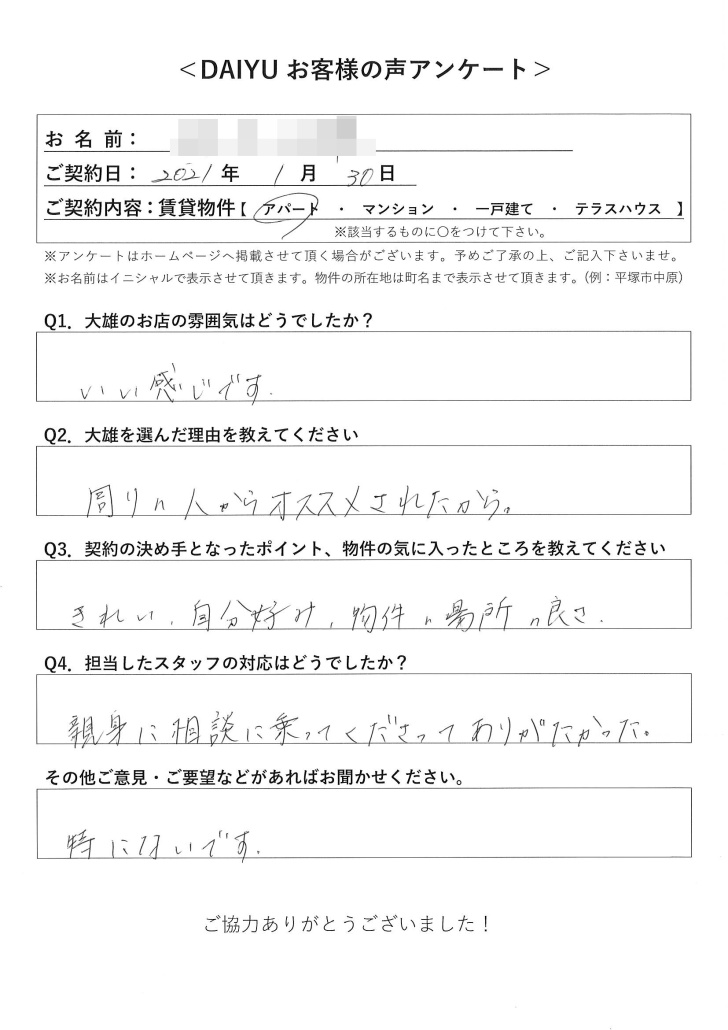 ＜DAIYU お客様の声アンケート＞
お 名 前：
ご契約日： 2021 年 1 月 30 日
ご契約内容：賃貸物件【 アパート ・ マンション ・ 一戸建て ・ テラスハウス 】
※該当するものに〇をつけて下さい。
※アンケートはホームページへ掲載させて頂く場合がございます。予めご了承の上、ご記入下さいませ。
※お名前はイニシャルで表示させて頂きます。物件の所在地は町名まで表示させて頂きます。（例：平塚市中原）
Q1. 大雄のお店の雰囲気はどうでしたか？
いい感じです.
Q2. 大雄を選んだ理由を教えてください
周りの人からオススメされたから。
Q3. 契約の決め手となったポイント、物件の気に入ったところを教えてください
きれい、自分好み、物件の場所の良さ.
Q4. 担当したスタッフの対応はどうでしたか？
親身に相談に乗ってくださってありがたかった。
その他ご意見・ご要望などがあればお聞かせください。
特にないです.
ご協力ありがとうございました！